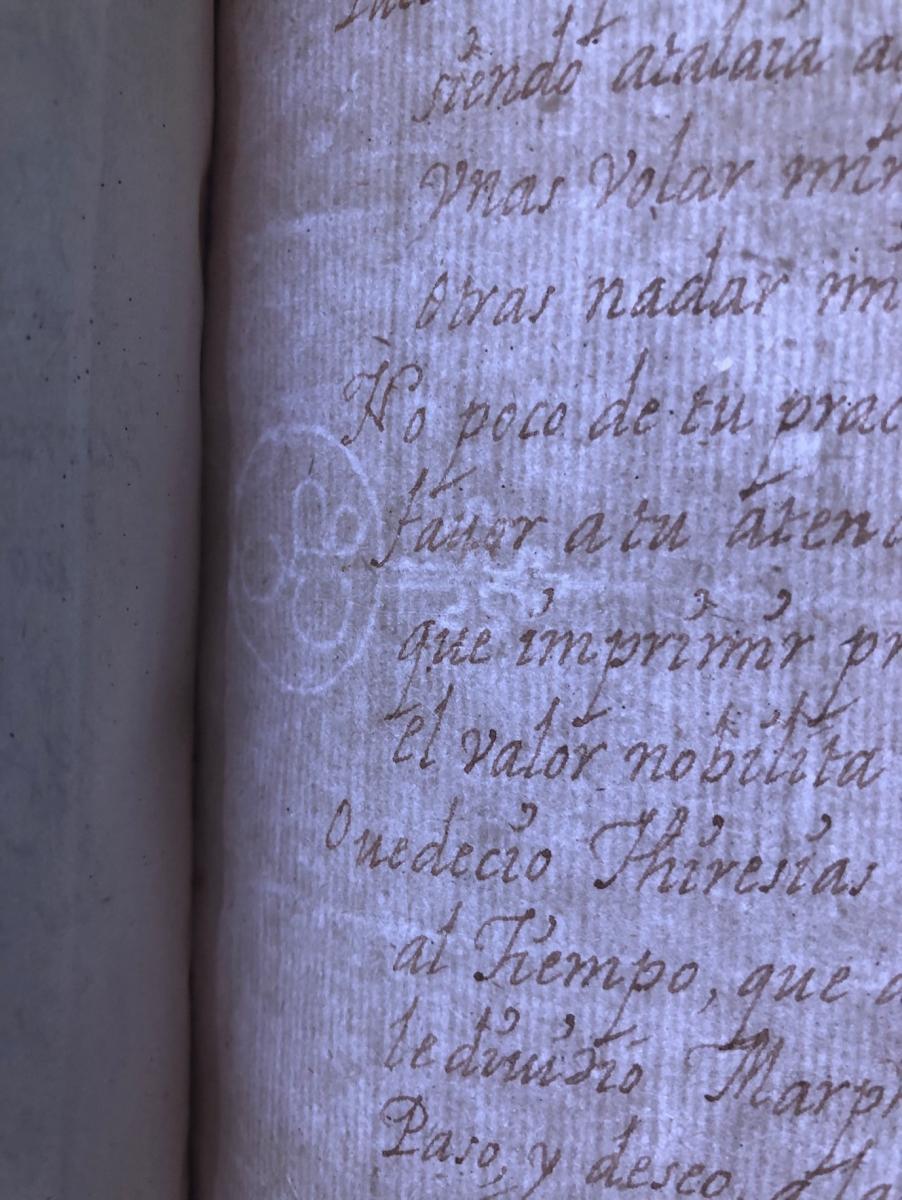 siendo atalaia a
vnas volar mir
otras nadar mi
No poco de tu prac
fauor a tu atenc
que imprimir pr
el valor nobilita
Ouedecio Thiresias
al Tiempo, que a
le diuidio Marph
Paso, y deseo